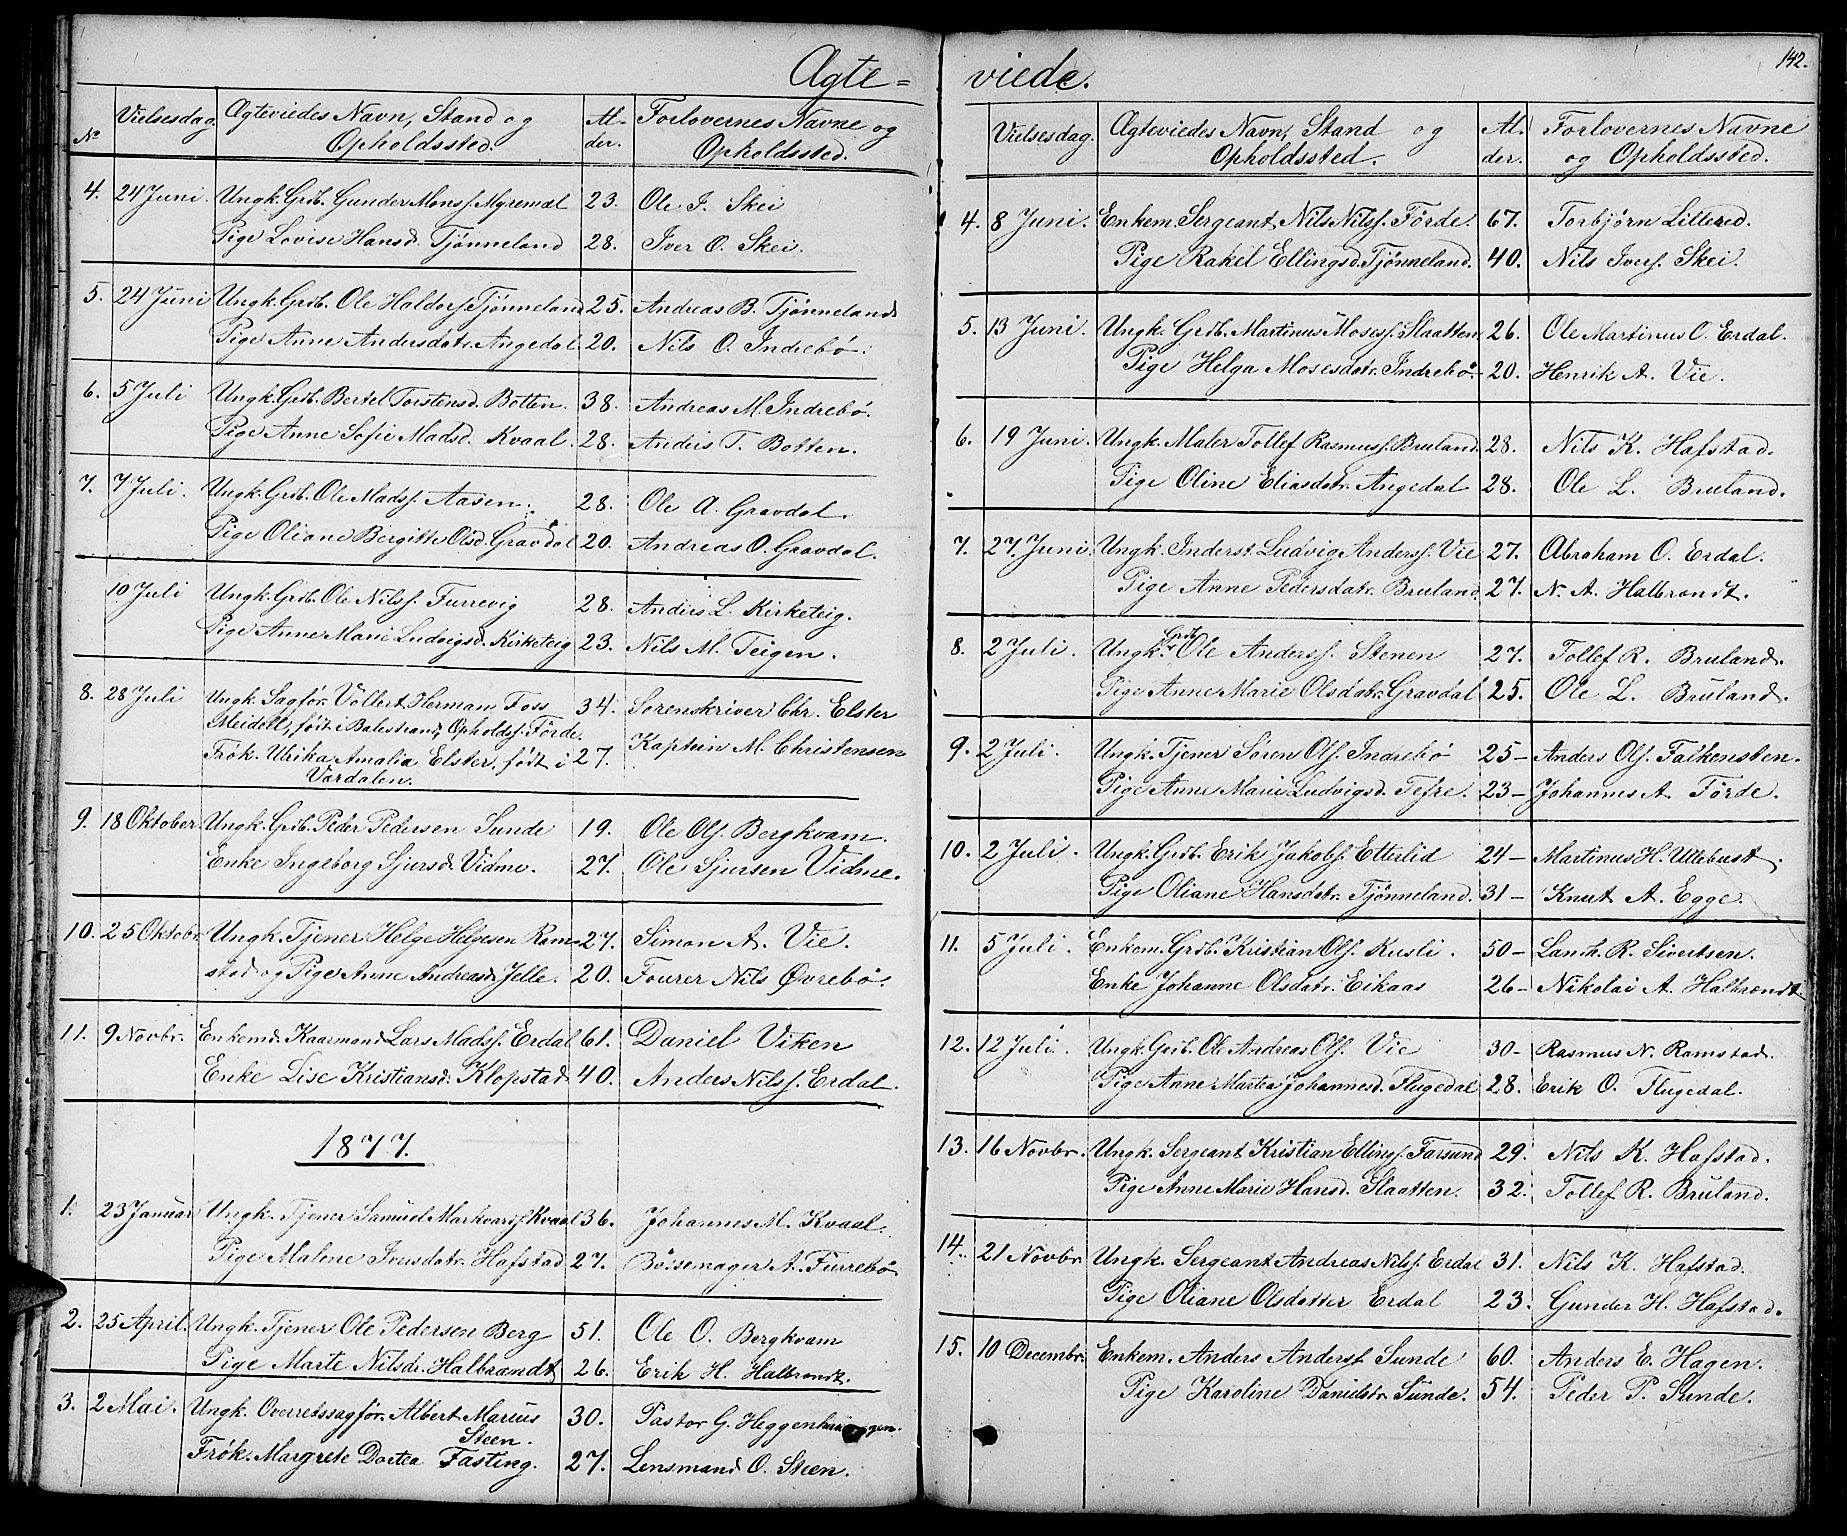 Ægte=
Nº Vielsesdag. Ægteviedes Navn, Stand og Opholdssted. Al-der. Forlovernes Navne og Opholdssted.
4. 24 Juni. Ungk. Grdb. Gunder Monss. Myremæl 23. Ole I. Skei
Pige Lovise Hansd. Tjønneland 28. Iver O. Skei.
5. 24 Juni Ungk. Grdb. Ole Haldors. Tjønneland 25. Andreas B. Tjønneland
Pige Anne Andersdatr. Angedal 20. Nils O. Indrebö.
6. 5 Juli Ungk. Grdb. Bertel Torstensd. Botten. 38. Andreas M. Indrebö.
Pige Anne Sofie Madsd. Kvaal. 28. Anders T. Botten.
7. 7 Juli. Ungk. Grdb. Ole Madss. Aasen. 28. Ole A. Gravdal.
Pige Oliane Bergitte Olsd. Gravdal 20. Andreas O. Gravdal.
10 Juli Ungk. Grdb. Ole Nilss. Furrevig 28. Anders L. Kirketeig.
Pige Anne Marie Ludvigsd. Kirketeig 23. Nils M. Teigen.
8. 28 Juli Ungk. Sagför. Vollert Herman Foss 34. Sorenskriver Chr. Elster
Meidell, födt i Balestrand, Opholdss. Förde.
Frök. Ulrika Amalia Elster, födt i 27. Kaptein M. Christensen
Værdalen.
9. 18 Oktober. Ungk. Grdb. Peder Pedersen Sunde 19. Ole Ols. Bergkvam.
Enke Ingeborg Sjursd. Vidme. 27. Ole Sjursen Vidme.
10. 25 Oktobr. Ungk. Tjener Helge Helgesen Ram- 27. Simon A. Vie.
stad og Pige Anne Andreasd. Jelle. 20. Fourer Nils Øvrebö.
11. 9 Novbr. Enkemd. Kaarmand Lars Madss. Erdal 61. Daniel Viken
Enke Lise Kristiansd. Klopstad 40. Anders Nilss. Erdal.
1877.
1. 23 Januar Ungk. Tjener Samuel Markvards. Kvaal 36. Johannes M. Kvaal.
Pige Malene Iversdatr. Hafstad 27. Bössemager A. Furrebö
2. 25 April. Ungk. Tjener Ole Pedersen Berg 51. Ole O. Bergkvam
Pige Marte Nilsdr. Halbrændt 26. Erik H. Halbrendt.
3. 2 Mai. Ungk. Overretssagför. Albert Marius 30. Pastor G. Heggenhaugen.
Steen.
Frök. Margrete Dortea Fasting. 27. Lensmand O. Steen.
viede.
142.
Vielsesdag. Ægteviedes Navn, Stand og Opholdssted. Al-der. Forlovernes Navne og Opholdssted.
4. 8 Juni. Enkem. Sergeant Nils Nilss. Förde. 67. Torbjörn Lillered.
Pige Rakel Ellingsd. Tjønneland. 40. Nils Ivers. Skei.
5. 13 Juni. Ungk. Grdb. Martinus Moses. Slaatten. 26. Ole Martinus O. Erdal.
Pige Helga Mosesdatr. Indrebö. 20. Henrik A. Vie.
6. 19 Juni. Ungk. Maler Tollef Rasmuss. Bruland. 28. Nils K. Hafstad.
Pige Oline Eliasdatr. Angedal 28. Ole L. Bruland.
7. 27. Juni. Ungk. Inderst Ludvig Anderss. Vie 27. Abraham O. Erdal.
Pige Anne Pedersdatr. Bruland. 27. N. A. Halbrændt.
8. 2 Juli. Ungk. Grdb. Ole Anderss. Stenen 27. Tollef R. Bruland.
Pige Anne Marie Olsdatr. Gravdal 25. Ole L. Bruland.
9. 2 Juli. Ungk. Tjener Sören Ols. Indrebö 25- Anders Ols. Falkensten.
Pige Anne Marie Ludvigsd. Tefre. 23- Johannes A. Förde.
10. 2 Juli. Ungk. Grdb. Erik Jakobs. Etterlid 24- Martinus H. Ullebust.
Pige Oliane Hansdatr. Tjønneland. 31- Knut A. Egge.
11. 5 Juli. Enkem. Grdb. Kristian Ols. Kusli. 50- Landh. R. Sivertsen.
Enke Johanne Olsdatr. Eikaas 26- Nikolai A. Halbrændt.
12. 12 Juli. Ungk. Grdb. Ole Andreas Ols. Vie 30- Rasmus N. Ramstad.
Pige Anne Martea Johannesd. Flugedal 28. Erik O. Flugedal.
13. 16 Novbr. Ungk. Sergeant Kristian Ellings. Farsund 29. Nils K. Hafstad.
Pige Anne Marie Hansd. Slaatten. 32. Tollef R. Bruland.
14. 21 Novbr Ungk. Sergeant Andreas Nilss. Erdal 31. Nils K. Hafstad.
Pige Oliane Olsdatter Erdal 23. Gunder H. Hafstad.
15. 10 Decembr. Enkem. Anders Anderss. Sunde 60. Anders E. Hagen.
Pige Karoline Danidstr. Sunde. 54. Peder P. Sunde.